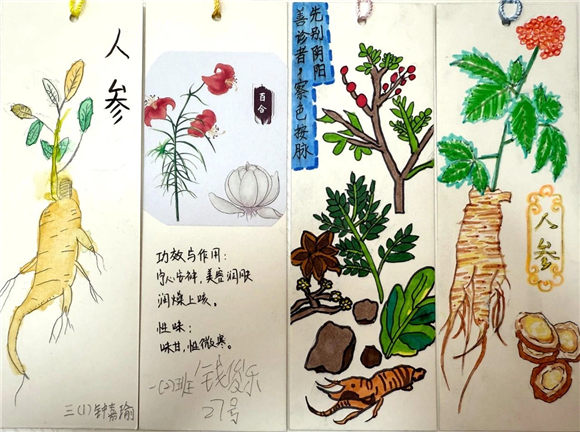 人参
三(1)钟嘉瑜
百合
功效与作用:
宁心安神,美容润肤
润燥止咳。
性味:
味甘,性微寒。
一(2)班 钱俊乐
27号
善诊者,察色按脉
先别阴阳
人参